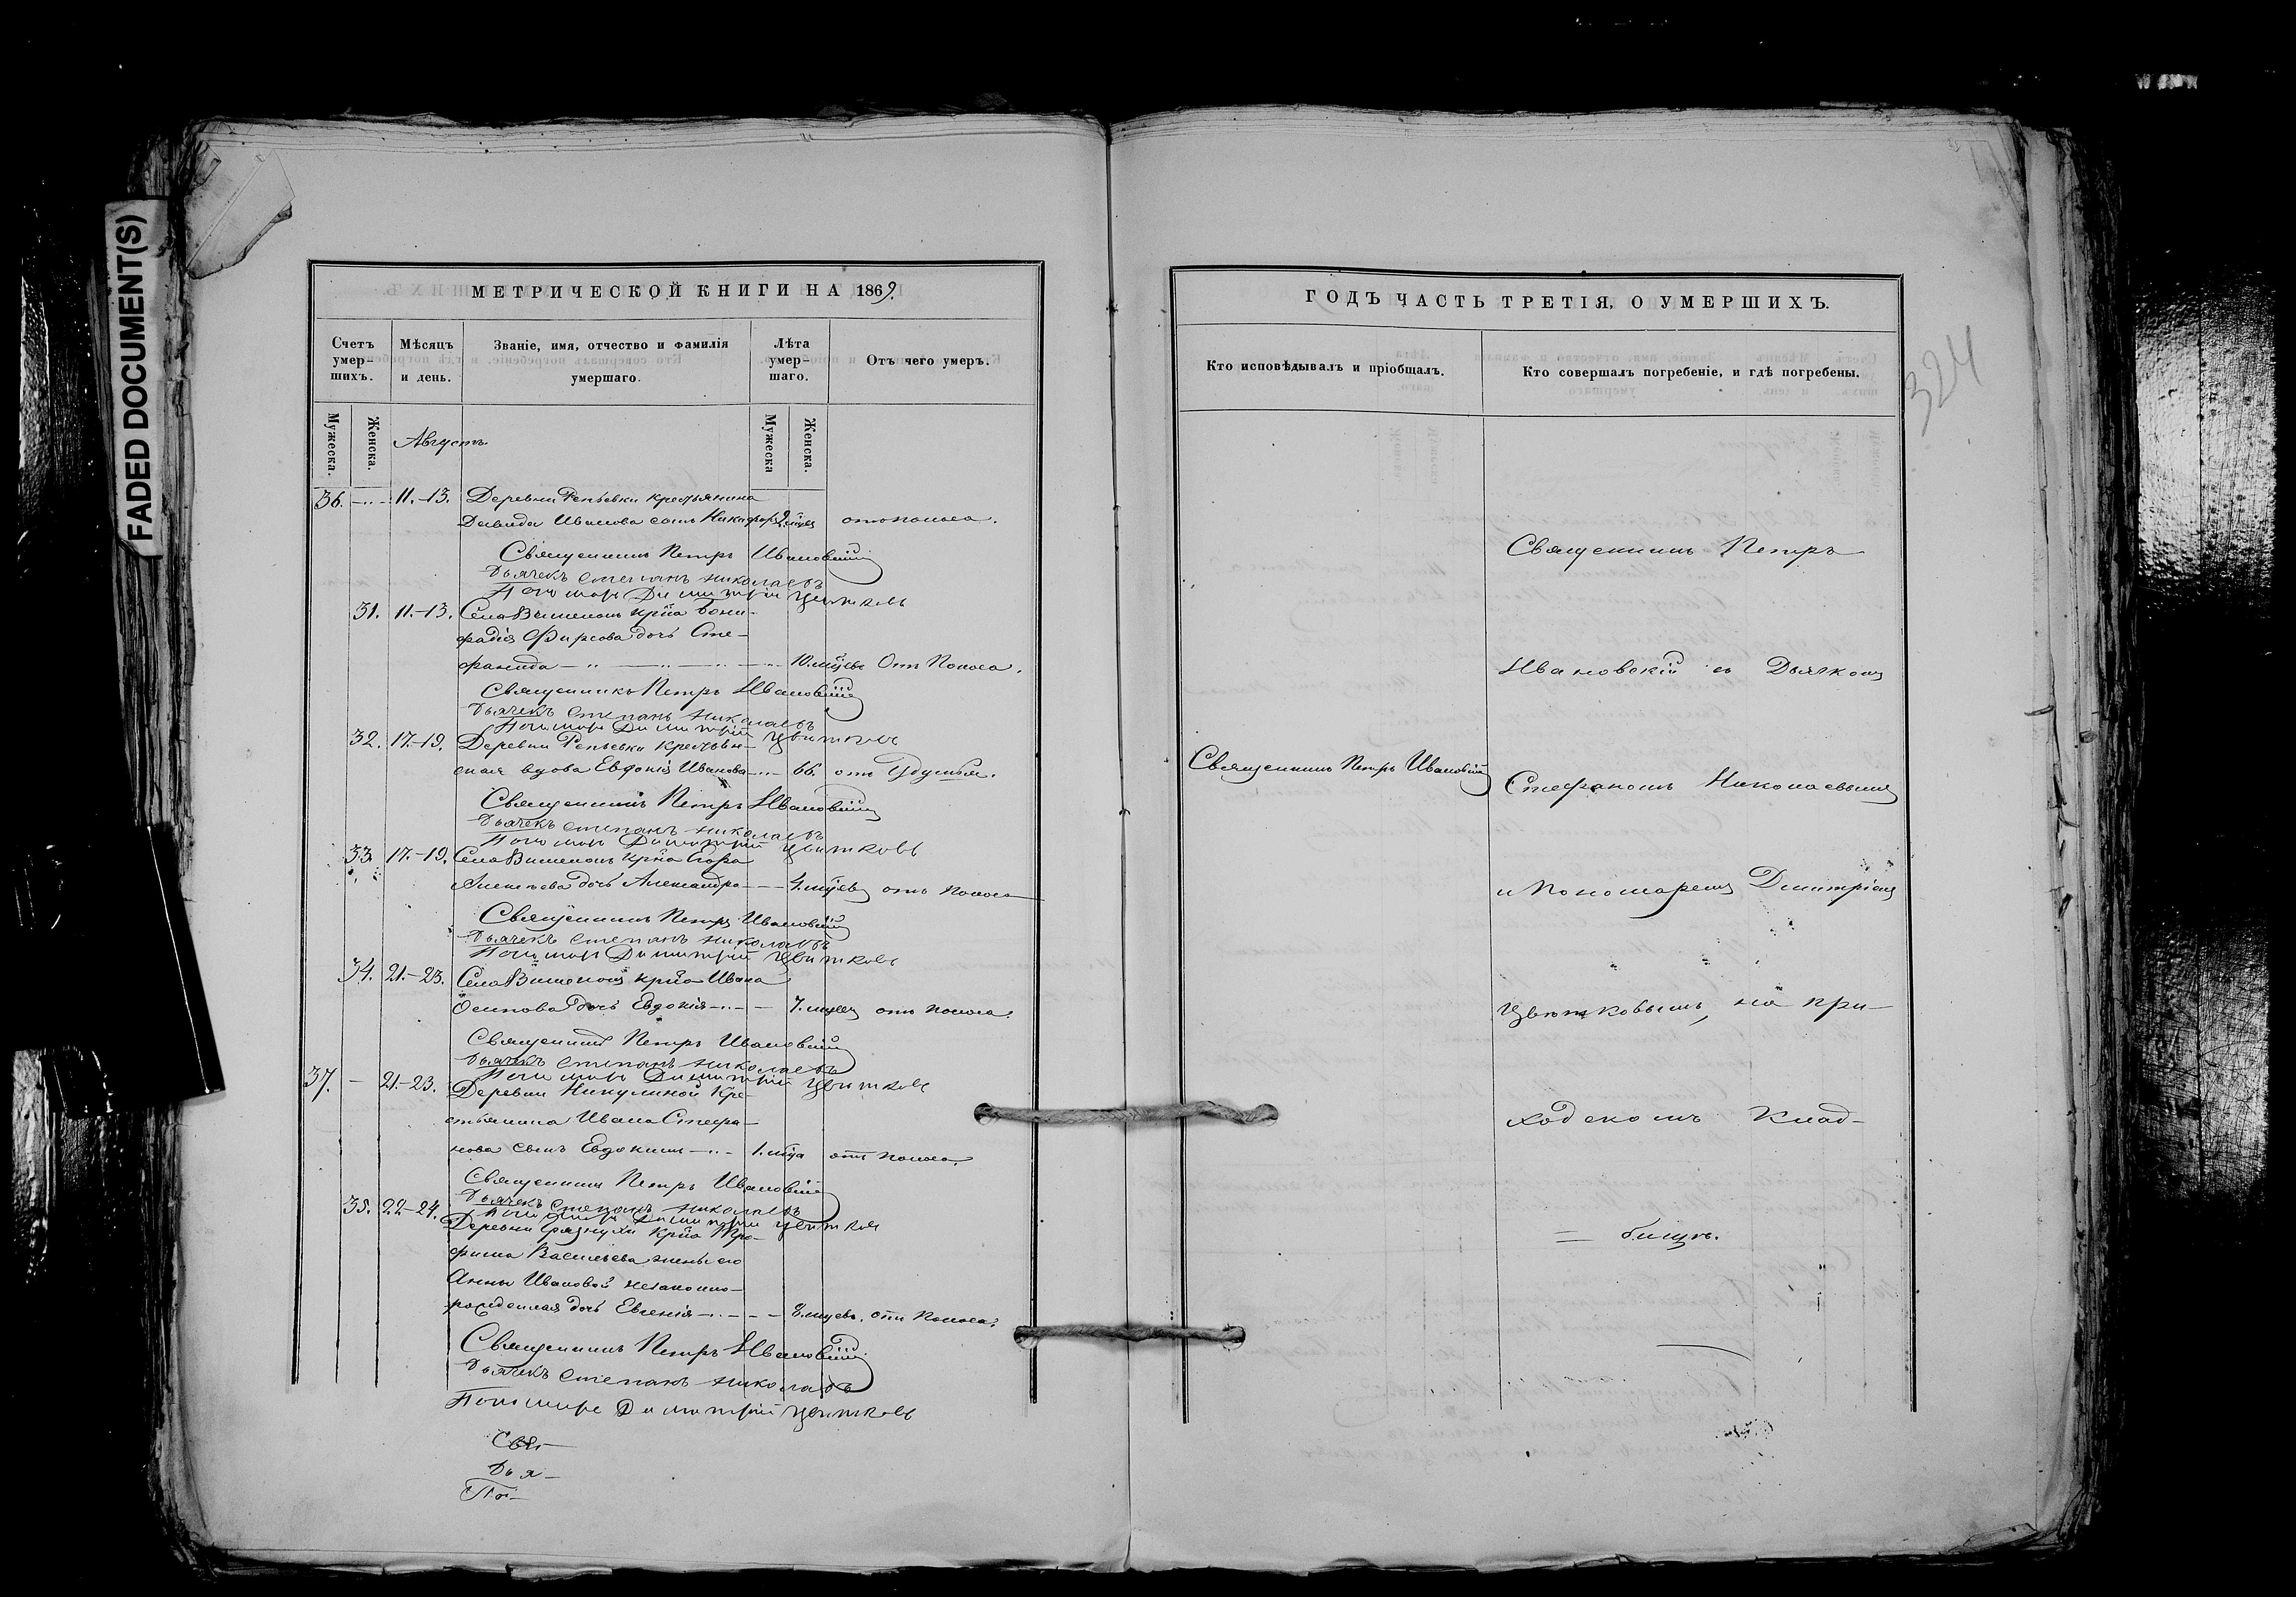 FADED DOCUMENT(S)
МЕТРИЧЕСКОЙ КНИГИ НА 1869.
Счетъ умер-шихъ.
Мѣсяцъ и день.
Званіе, имя, отчество и фамилія умершаго.
Лѣта умер-шаго.
Отъ чего умеръ.
Мужеска.
Женска.
Мужеска
Женска.
Августъ.
36. 11.-13. Деревни Репьевки крестьянина
Давида Иванова сынъ Никифоръ 2. мѣсяц. отъ поноса.
Священникъ Петръ Ивановскій
Дьячекъ Степанъ Николаевъ
Пономарь Димитрій Цвѣтковъ
31. 11.-13. Села Вишенокъ кр-на Бони-
фатія Фирсова дочь Сте-
фанида 10. мѣсяц. Отъ Поноса.
Священникъ Петръ Ивановскій
Дьячекъ Степанъ Николаевъ
Пономарь Димитрій Цвѣтковъ
32. 17.-19. Деревни Репьевки крестьян-
ская вдова Евдокія Иванова 66. отъ удушья.
Священникъ Петръ Ивановскій
Дьячекъ Степанъ Николаевъ
Пономарь Димитрій Цвѣтковъ
33. 17.-19. Села Вишенокъ кр-на Егора
Алексѣева дочь Александра 4. мѣсяц. отъ поноса
Священникъ Петръ Ивановскій
Дьячекъ Степанъ Николаевъ
Пономарь Димитрій Цвѣтковъ
34. 21.-23. Села Вишенокъ кр-на Ивана
Осипова дочь Евдокія 7. мѣсяц. отъ поноса.
Священникъ Петръ Ивановскій
Дьячекъ Степанъ Николаевъ
Пономарь Димитрій Цвѣтковъ
37. 21.-23. Деревни Никулиной кре-
стьянина Ивана Стефа-
нова сынъ Евдокимъ 1. м-ца отъ поноса.
Священникъ Петръ Ивановскій
Дьячекъ Степанъ Николаевъ
Пономарь Димитрій Цвѣтковъ
35. 22-24. Деревни кр-на Тро-
фима Васильева жены его
Анны Ивановой незаконно-
рожденная дочь Евгенія мѣсяц. отъ поноса.
Священникъ Петръ Ивановскій
Дьячекъ Степанъ Николаевъ
Пономарь Димитрій Цвѣтковъ
Свя-
Дья-
По-
ГОДЪ ЧАСТЬ ТРЕТІЯ, О УМЕРШИХЪ.
Кто исповѣдывалъ и пріобщалъ.
Кто совершалъ погребеніе, и гдѣ погребены.
324
Священникъ Петръ Ивановскій
Священникъ Петръ
Ивановскій съ Дьячкомъ
Стефаномъ Николаевымъ
и Пономаремъ Димитріемъ
Цвѣтковымъ, на при-
ходскомъ клад-
бищѣ.